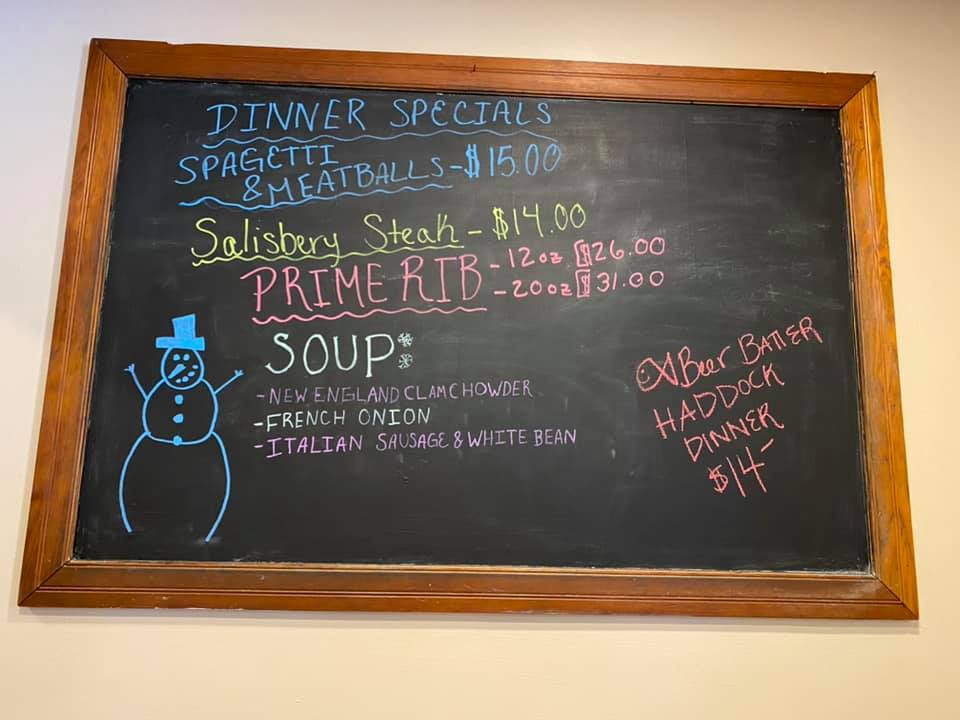 DINNER SPECIALS
SPAGETTI
& MEATBALLS - $15.00
Salisbery Steak - $14.00
PRIME RIB - 12oz $26.00
- 20oz $31.00
SOUP:
- NEW ENGLAND CLAM CHOWDER
- FRENCH ONION
- ITALIAN SAUSAGE & WHITE BEAN
Beer BATTER
HADDOCK
DINNER
$14-